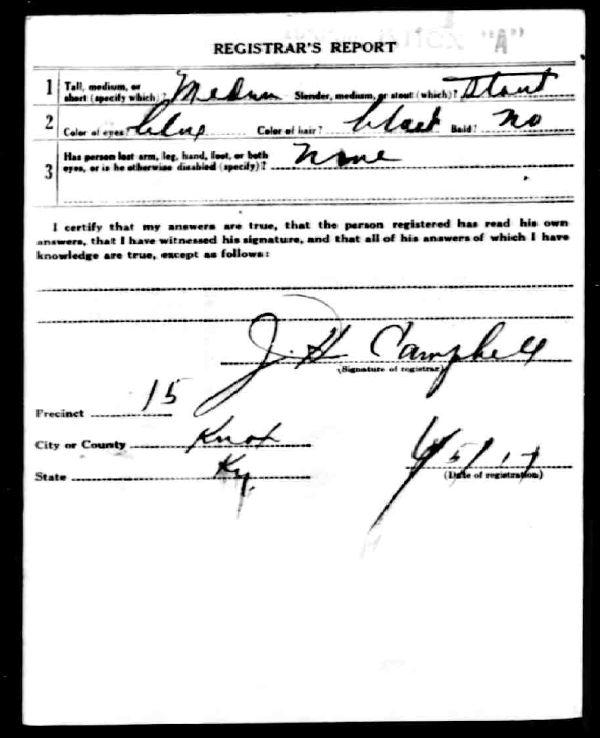 "A"
REGISTRAR'S REPORT
1 Tall, medium, or short (specify which)? Medium Slender, medium, or stout (which)? Stout
2 Color of eyes? blue Color of hair? black Bald? no
3 Has person lost arm, leg, hand, foot, or both eyes, or is he otherwise disabled (specify)? None
I certify that my answers are true, that the person registered has read his own
answers, that I have witnessed his signature, and that all of his answers of which I have
knowledge are true, except as follows:
J. H Campbell
(Signature of registrar)
Precinct 15
City or County Knox
State Ky.
6/5/17
(Date of registration)